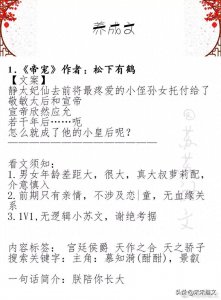 养成文
1.《帝宠》作者：松下有鹤
【文案】
静太妃仙去前将最疼爱的小侄孙女托付给了
敬敏太后和宣帝
宣帝欣然应允
若干年后……呃
怎么就成了他的小皇后呢？
看文须知：
1.男女年龄差距大，很大，真大叔萝莉配，
介意慎入
2.前期只有亲情，不涉及恋|童，无血缘关
系
3.1V1，无逻辑小苏文，谢绝考据
内容标签： 宫廷侯爵 天作之合 天之骄子
搜索关键字：主角：慕知漪(酣酣)，景叡
一句话简介：朕陪你长大